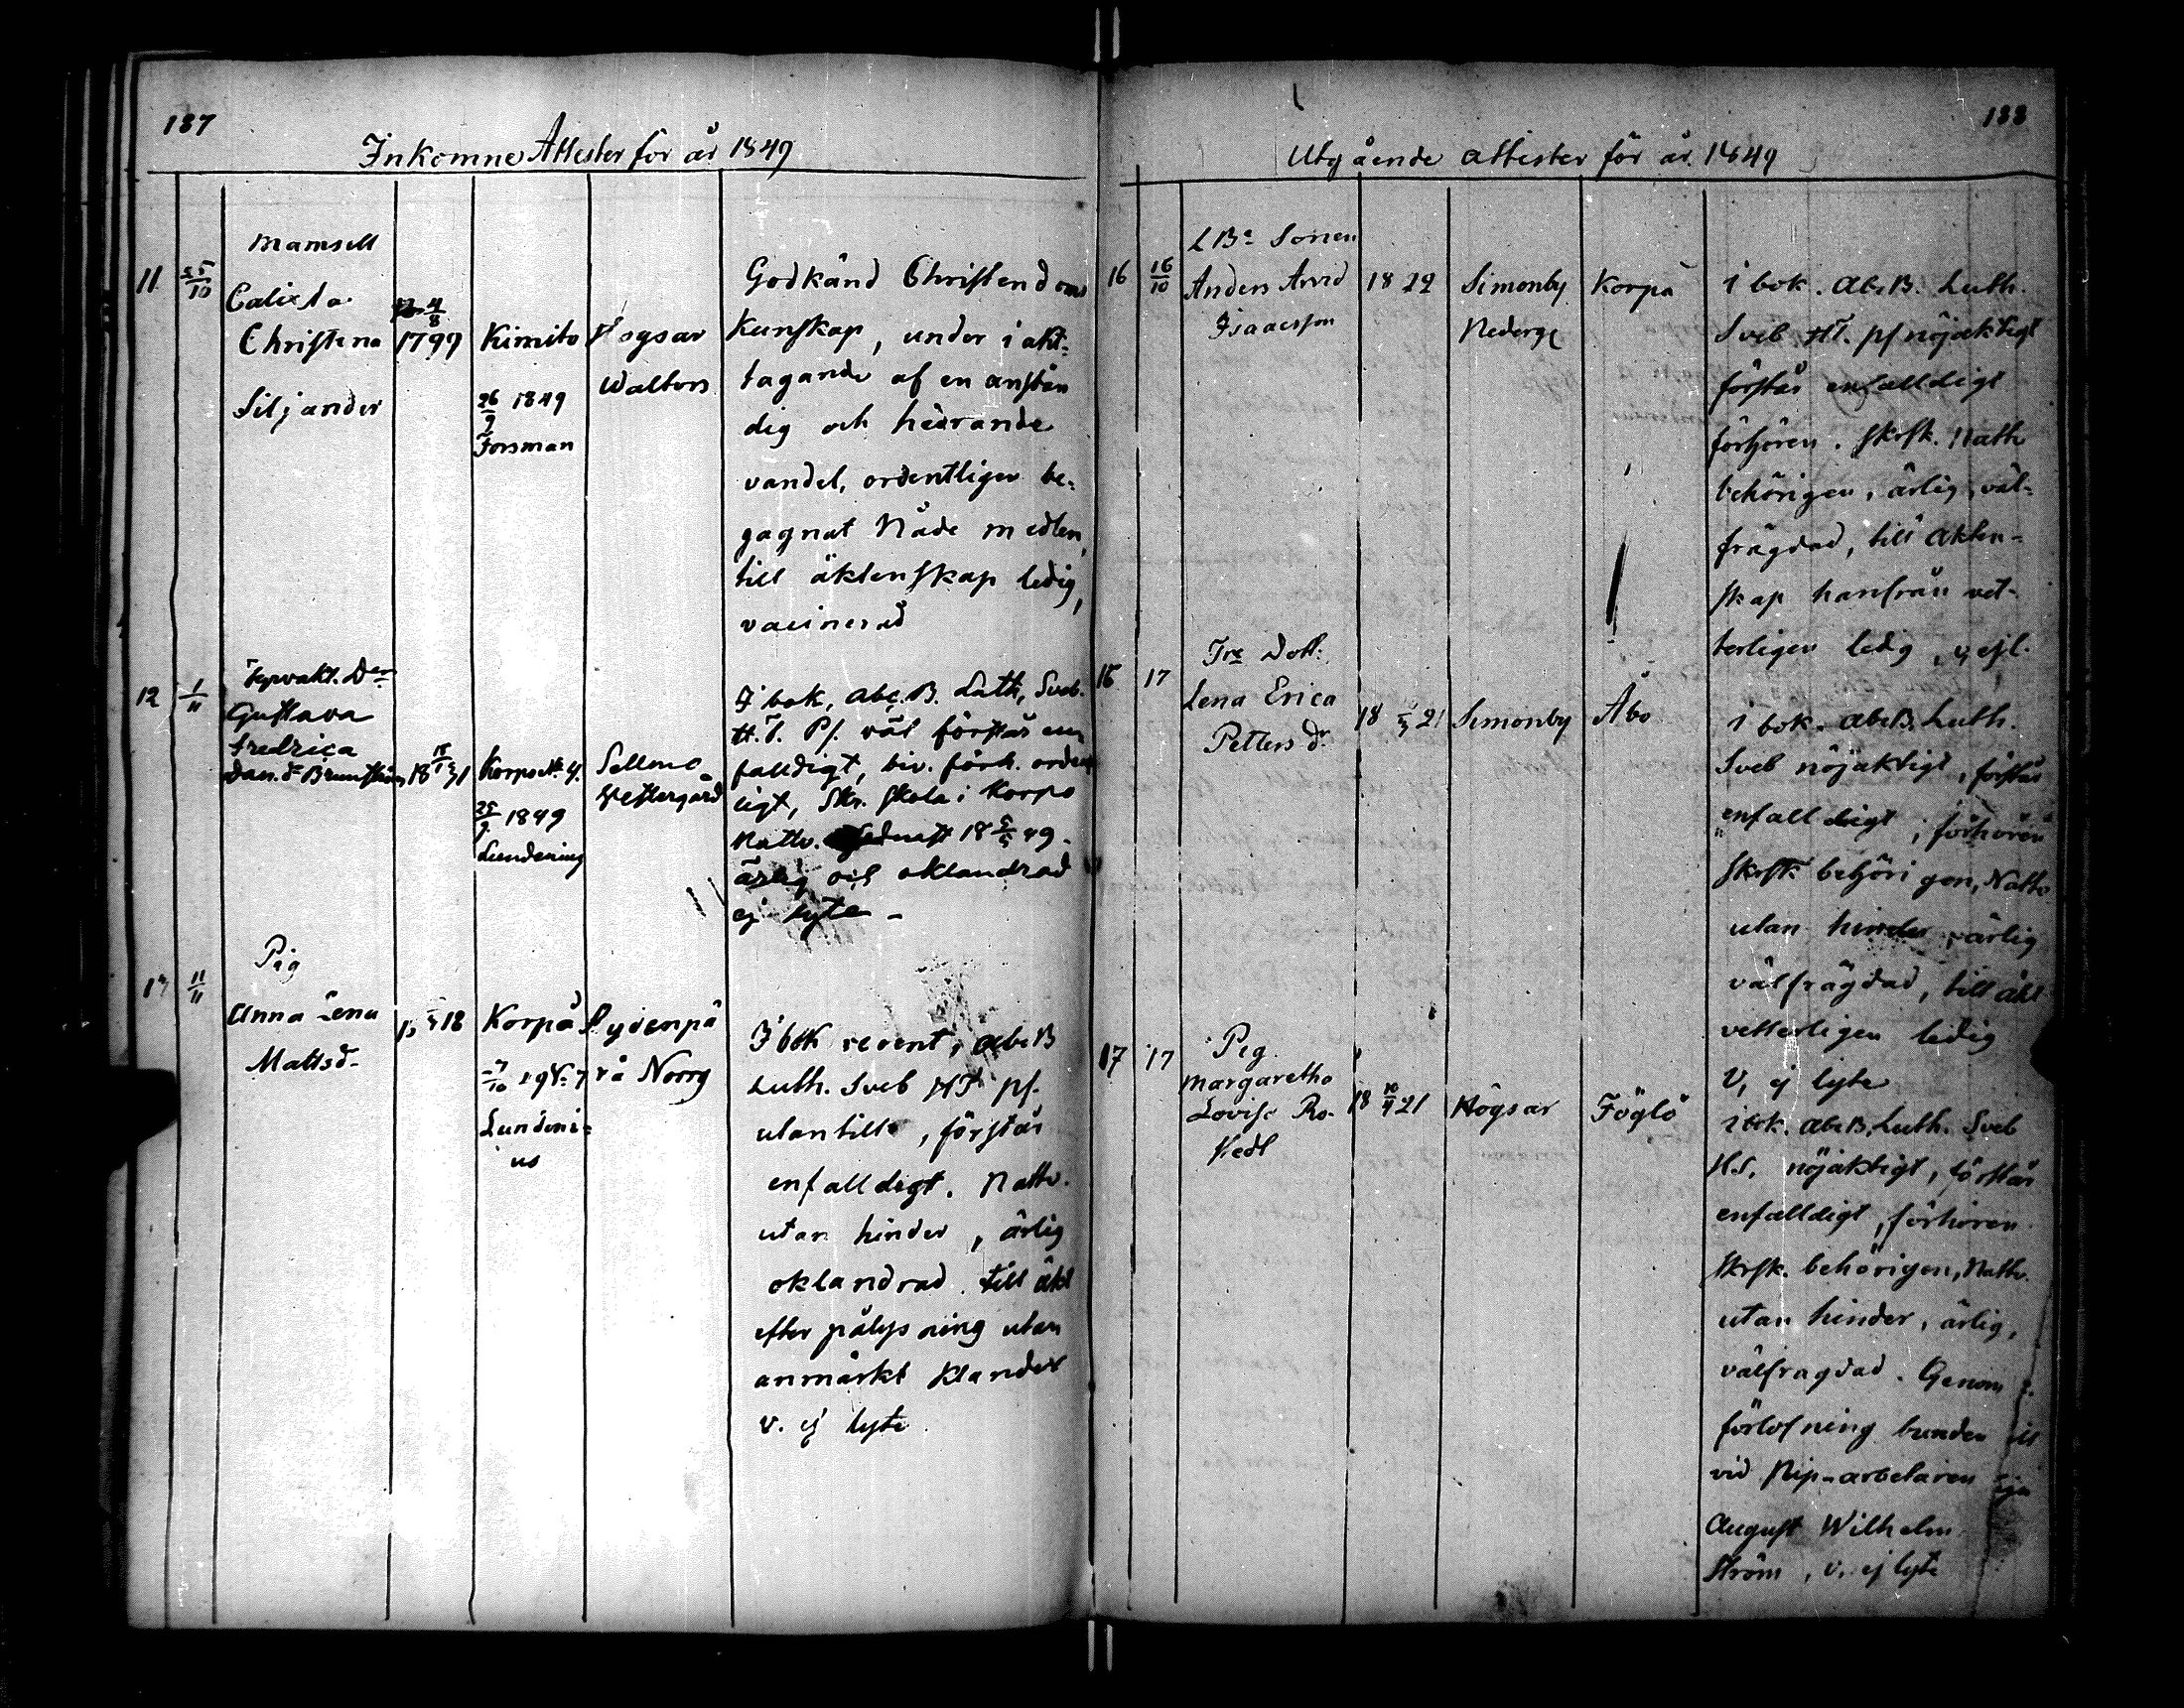 187
Inkomne Attester för år 1849
11
25/10
Mamsell
Calixta
Christina
Siljander
4/8
1799
Kimito
26/9 1849
Forsman
Hogsar
Waltors
Godkänd Christendoms
Kunskap, under iakt-
tagande af en anstän
dig och hedrande
vandel, ordentligen be-
gagnat Nåde medlen,
till äktenskap ledig,
vacinerad
12
1/11
Gustava
Fredrica
Dan. dr Brunström
18 31
Korpo
25/9 1849
Sellmo
Westergård
I bok, abc.B. Luth, Sveb.
H.T. Ps. väl förstår en-
falldigt, biv. förh. ordent
ligt, Skr. skola i Korpo
Nattv. 18 5/5 49.
ärlig och oklandrad
ej lyte -
13
11/11
Pig
Anna Lena
Mattsd.
18
Korpå
7/10
Lundeni-
us
Norrg
I bok recent, abcB
Luth. Sveb HT ps.
utantill, förstår
enfalldigt. Nattv.
utan hinder, ärlig
oklandrad. till äkt
efter pålysning utan
anmärkt klander
v. ej lyte
188
Utgående attester för år 1849
16
16/10
LBe Sonen
Anders Arvid
Isaacsson
1822
Simonby
Nederg
Korpå
i bok. abcB. Luth.
Sveb. HT. ps nöjaktigt
förstår enfalldigt
förhören. skrsk. Nattv
behörigen, ärlig, väl-
frägdad, till äkten-
skap hanfrån vet-
terligen ledig, v, ejl.
17
Lena Erica
Petters dr
18 21
Simonby
Åbo
i bok. abcB. Luth.
Sveb nöjaktigt, förstår
enfalldigt, förhören
skrsk behörigen, Nattv
utan hinder, ärlig
välfrägdad, till äkt
vetterligen ledig
V, ej lyte
17
17
Pig.
Margaretha
Lovisa Ro-
stedt
18 21
Högsar
Föglö
i bok. abcB. Luth. Sveb
H.S. nöjaktigt, förstår
enfalldigt, förhören
skrsk. behörigen, Nattv.
utan hinder, ärlig,
välfragdad. Genom
förlofning bunden
vid arbetaren
August Wilhelm
Ström, v. ej lyte